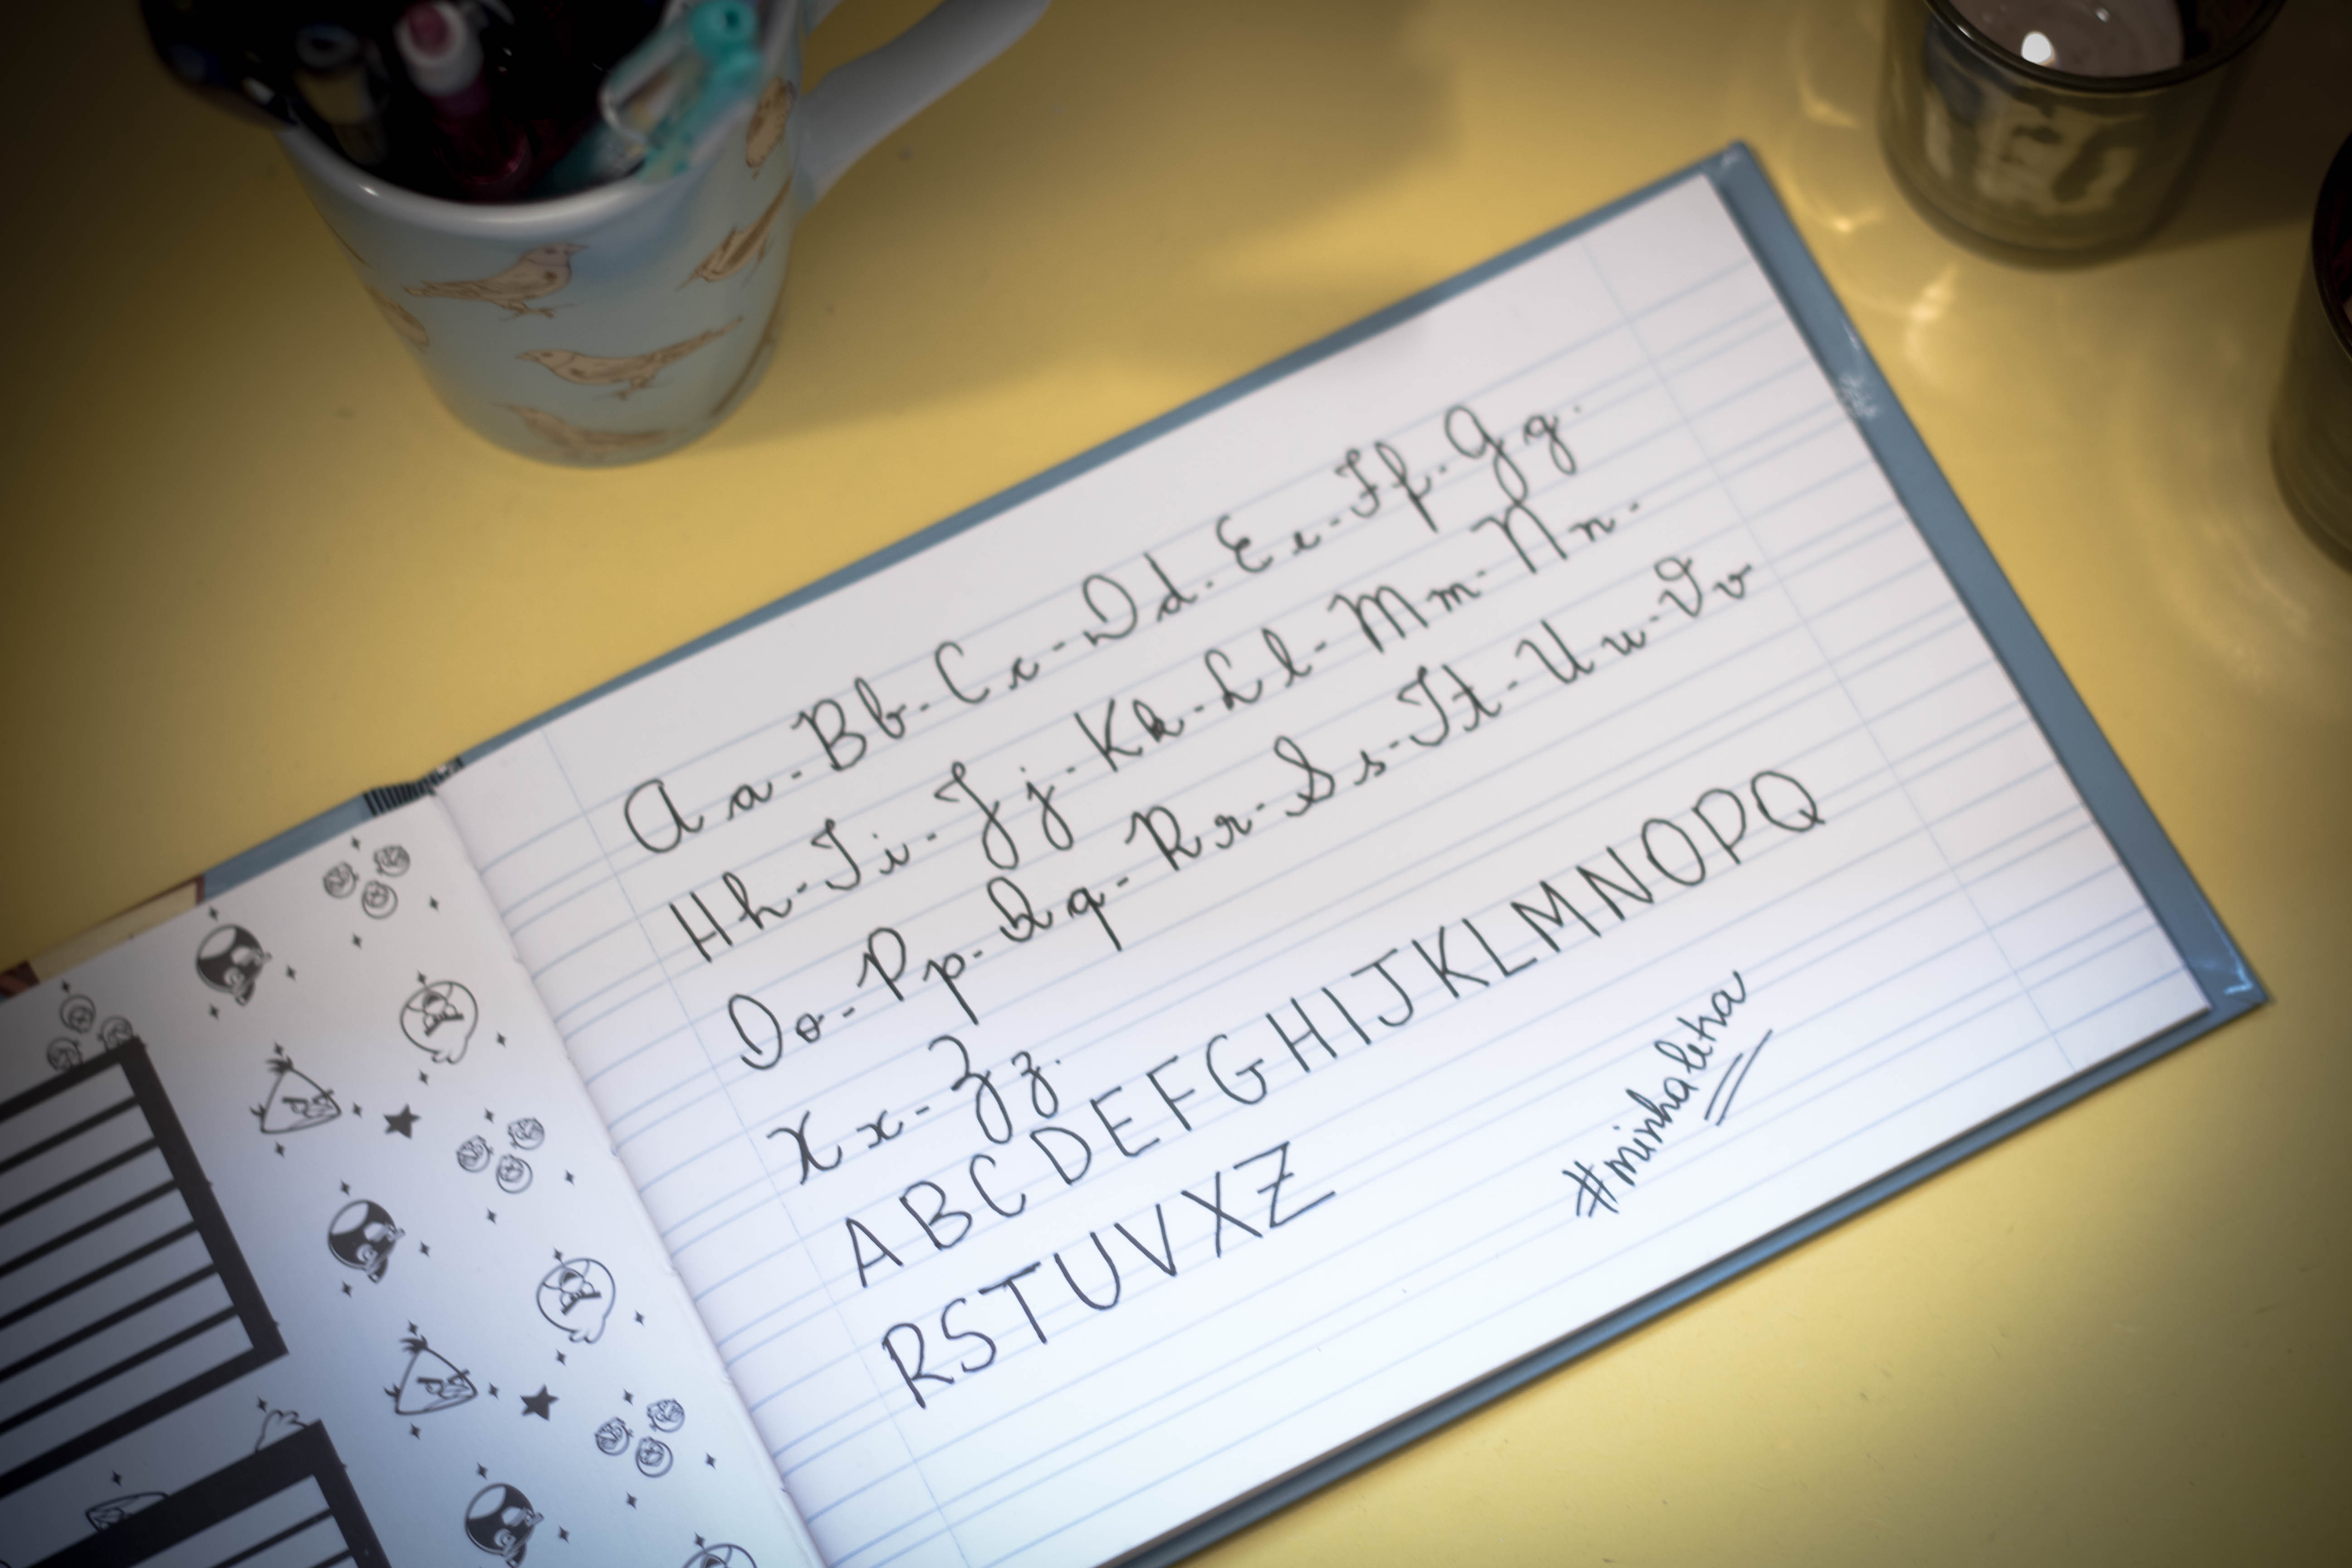 Aa - Bb - Cc - Dd - Ee - Ff - Gg.
Hh - Ii - Jj - Kk - Ll - Mm - Nn -
Oo - Pp - Qq - Rr - Ss - Tt - Uu - Vv
Xx - Zz.
ABCDEFGHIJKLMNOPQ
RSTUVXZ
#minhaletra